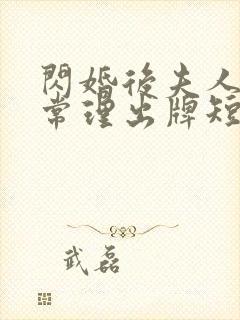 閃婚後夫人
常理出牌短
武磊